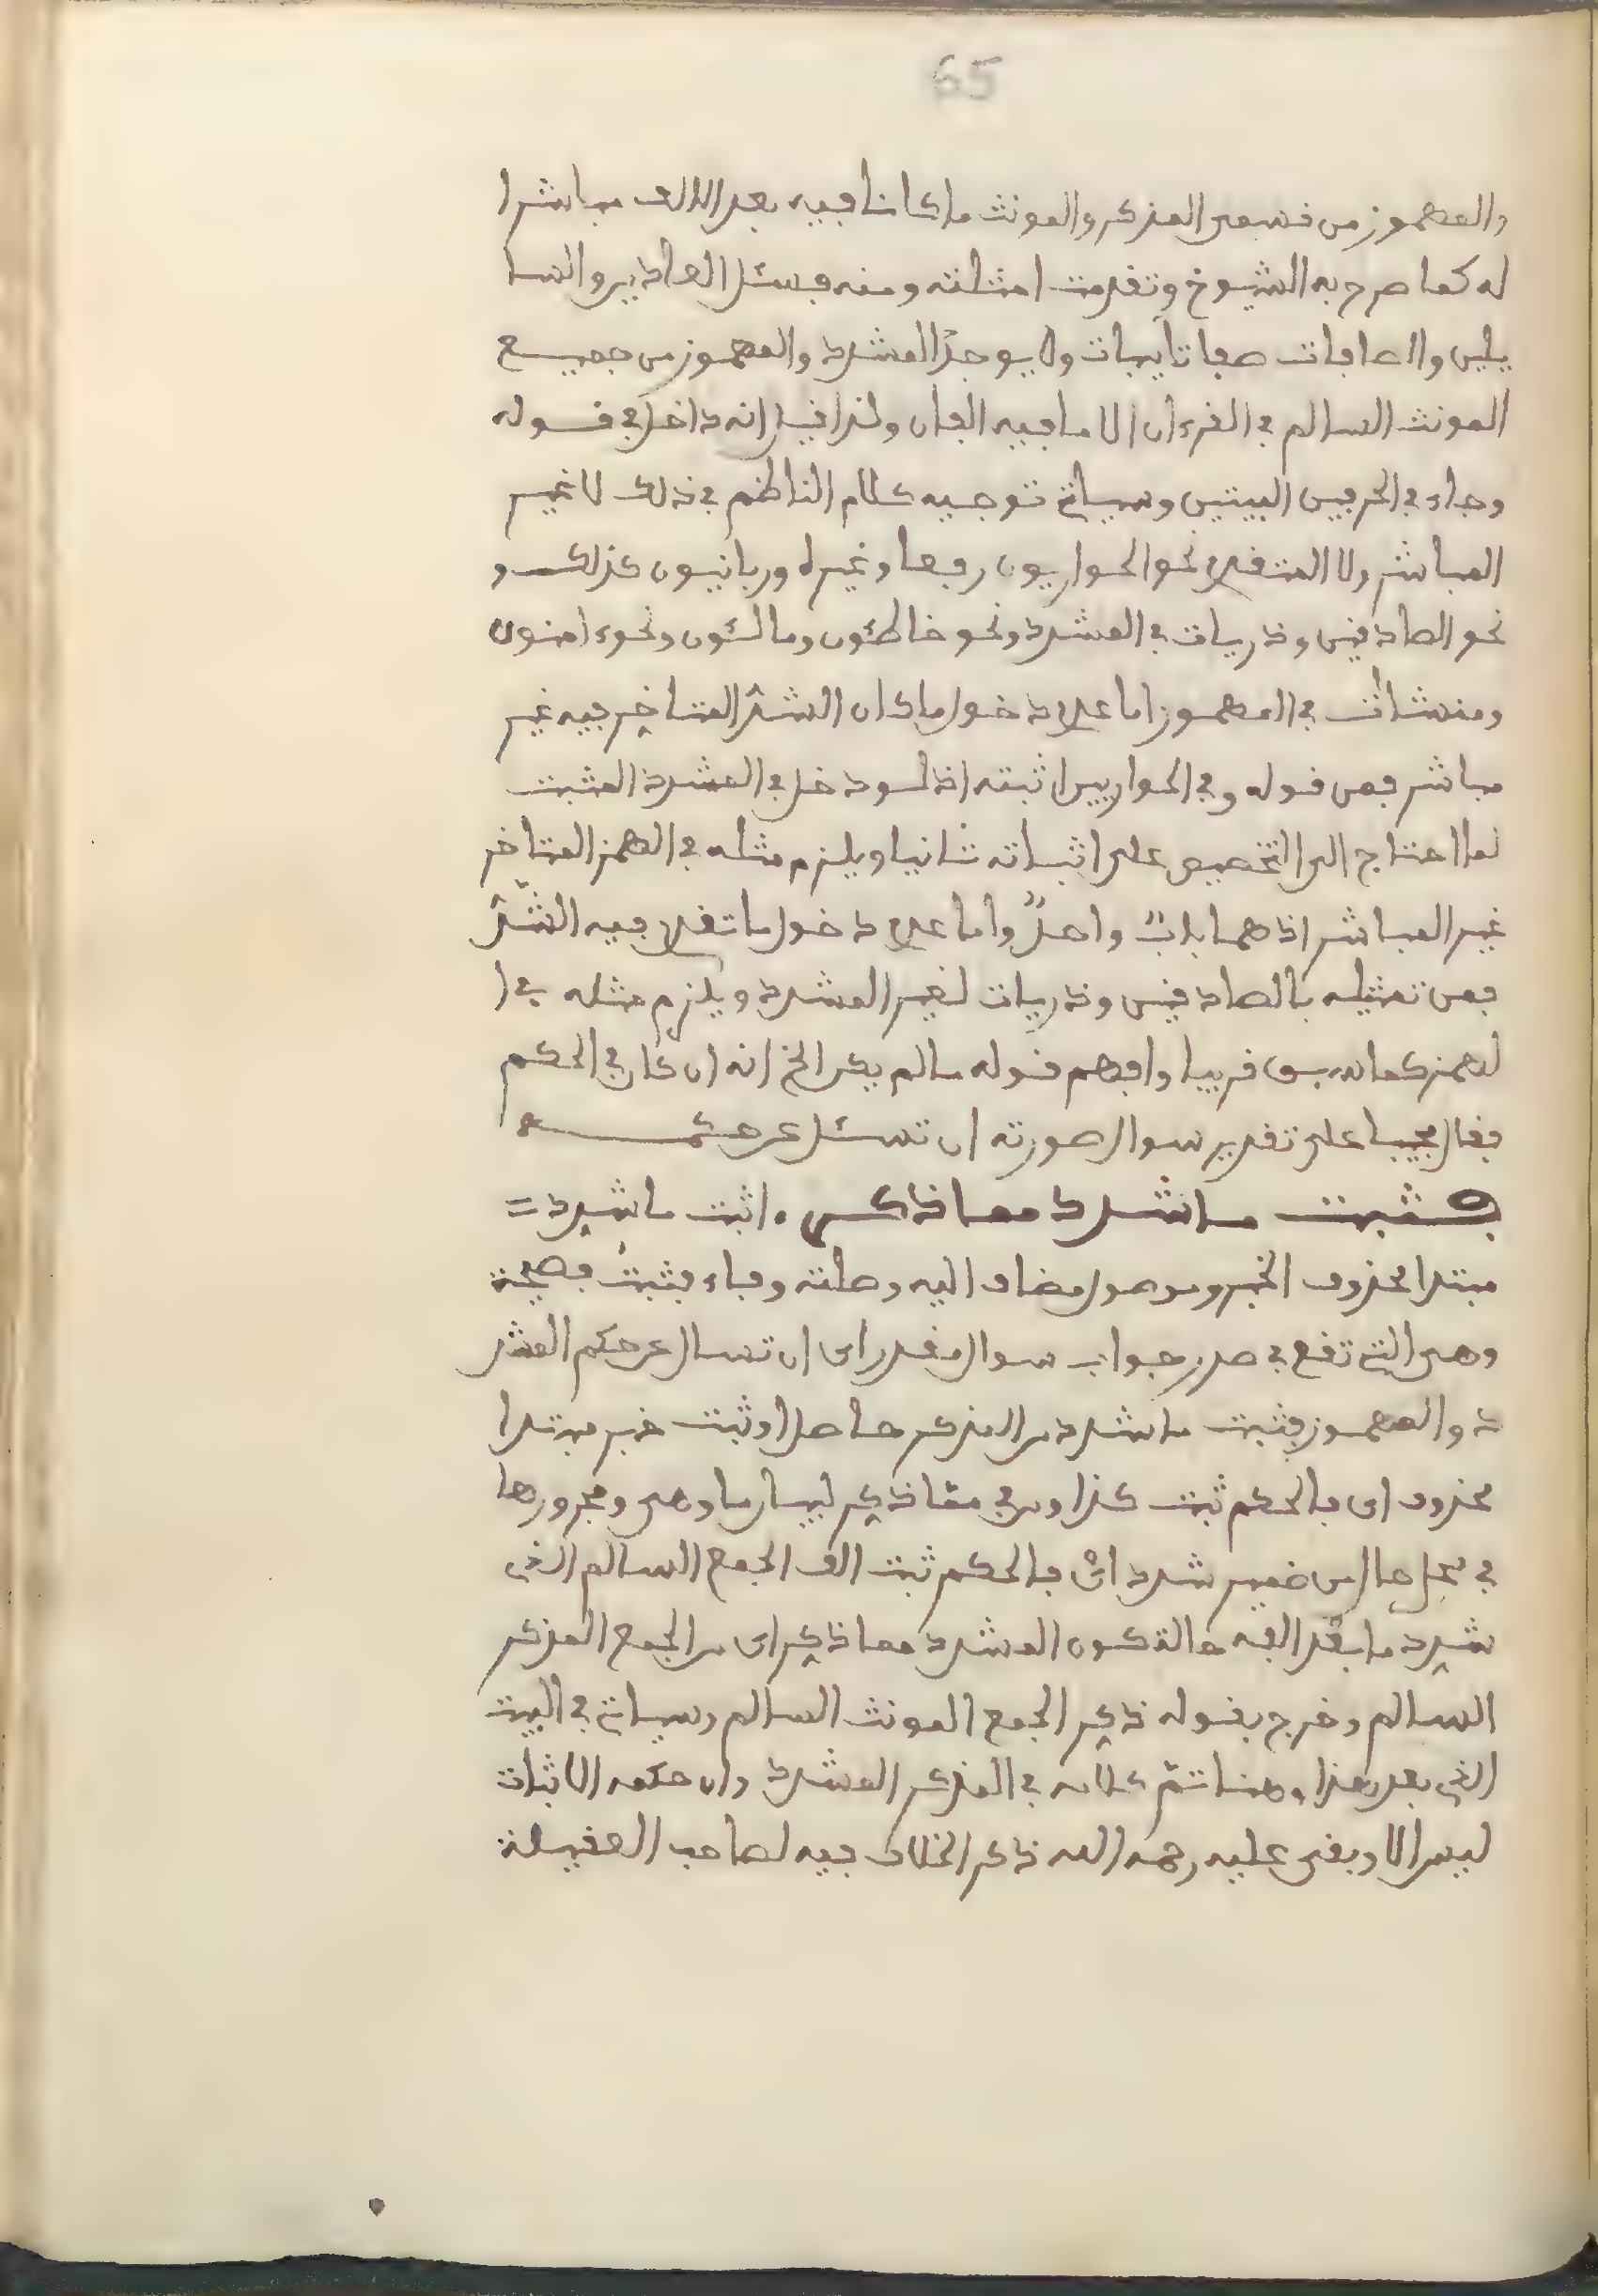 65
والمهموز من قسمي المذكر والمونث ما كانا فيه بعد الالف مباشرا
له كما صرح به الشيوخ وتقدمت امثلته ومنه فسئل العادين والسا
يلين والصافات صفا تايبات ولا يوجد المشدد والمهموز من جميع
المونث السالم في القرءان الا ما فيه الفان ولذا قيل انه داخل في قوله
وجاء في الحرفين البيتين وسياتي توجيه كلام الناظم في ذلك لا غير
المباشر ولا المتقدم نحو الحواريون رفعا وغيره وربانيون كذلك و
نحو الصادقين وذريات في المشدد ونحو خاطئون ومالئون ونحو ءامنون
ومنشئات في المهموز اما عدم دخول ما كان الشد المتاخر فيه غير
مباشر فمن قوله وفي الحواريين اثبته اذ لو دخل في المشدد المثبت
لما احتاج الى التخصيص على اثباته ثانيا ويلزم مثله في الهمز المتاخر
غير المباشر اذ هما باب واحد واما عدم دخول ما تقدم فيه الشد
فمن تمثيله بالصادقين وذريات لغير المشدد ويلزم مثله في ا
لهمز كما مر قريبا وافهم قوله ما لم يكن الخ انه ان كان في الحكم
فقال مجيبا على تقدير سوال صورته ان تسئل عن حكمه
فثبت ما شدد مما ذكرا ، اثبت ما شدد =
مبتدا محذوف الخبر وموصول مضاف اليه وصلته وفاء فثبت فصيحة
وهي التي تقع في صدر جواب سوال مقدر اى ان تسال عن حكم المشد
د والمهموز فثبت ما شدد من المذكر حاصل او ثبت خبر مبتدا
محذوف اى فالحكم ثبت كذا ومن في مما ذكر لبيان ما وهي ومجرورها
في محل حال من ضمير شدد اى فالحكم ثبت الف الجمع السالم الذى
شدد ما بعد الفه حالة كون المشدد مما ذكر اى من الجمع المذكر
السالم وخرج بقوله ذكر الجمع المونث السالم وسياتي في البيت
الذى بعد هذا وهنا تم كلامه في المذكر المشدد وان حكمه الاثبات
ليس الا وبقي عليه رحمه الله ذكر الخلاف فيه لصاحب العقيلة